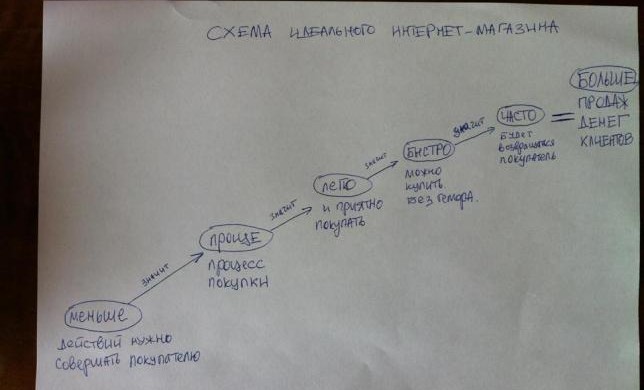 СХЕМА ИДЕАЛЬНОГО ИНТЕРНЕТ-МАГАЗИНА
МЕНЬШЕ
ДЕЙСТВИЙ НУЖНО
СОВЕРШАТЬ ПОКУПАТЕЛЮ
ЗНАЧИТ
ПРОЩЕ
ПРОЦЕСС
ПОКУПКИ
ЗНАЧИТ
ЛЕГКО
И ПРИЯТНО
ПОКУПАТЬ
ЗНАЧИТ
БЫСТРО
МОЖНО
КУПИТЬ
БЕЗ ГЕМОРА.
ЗНАЧИТ
ЧАСТО
БУДЕТ
ВОЗВРАЩАТЬСЯ
ПОКУПАТЕЛЬ
=
БОЛЬШЕ
ПРОДАЖ
ДЕНЕГ
КЛИЕНТОВ